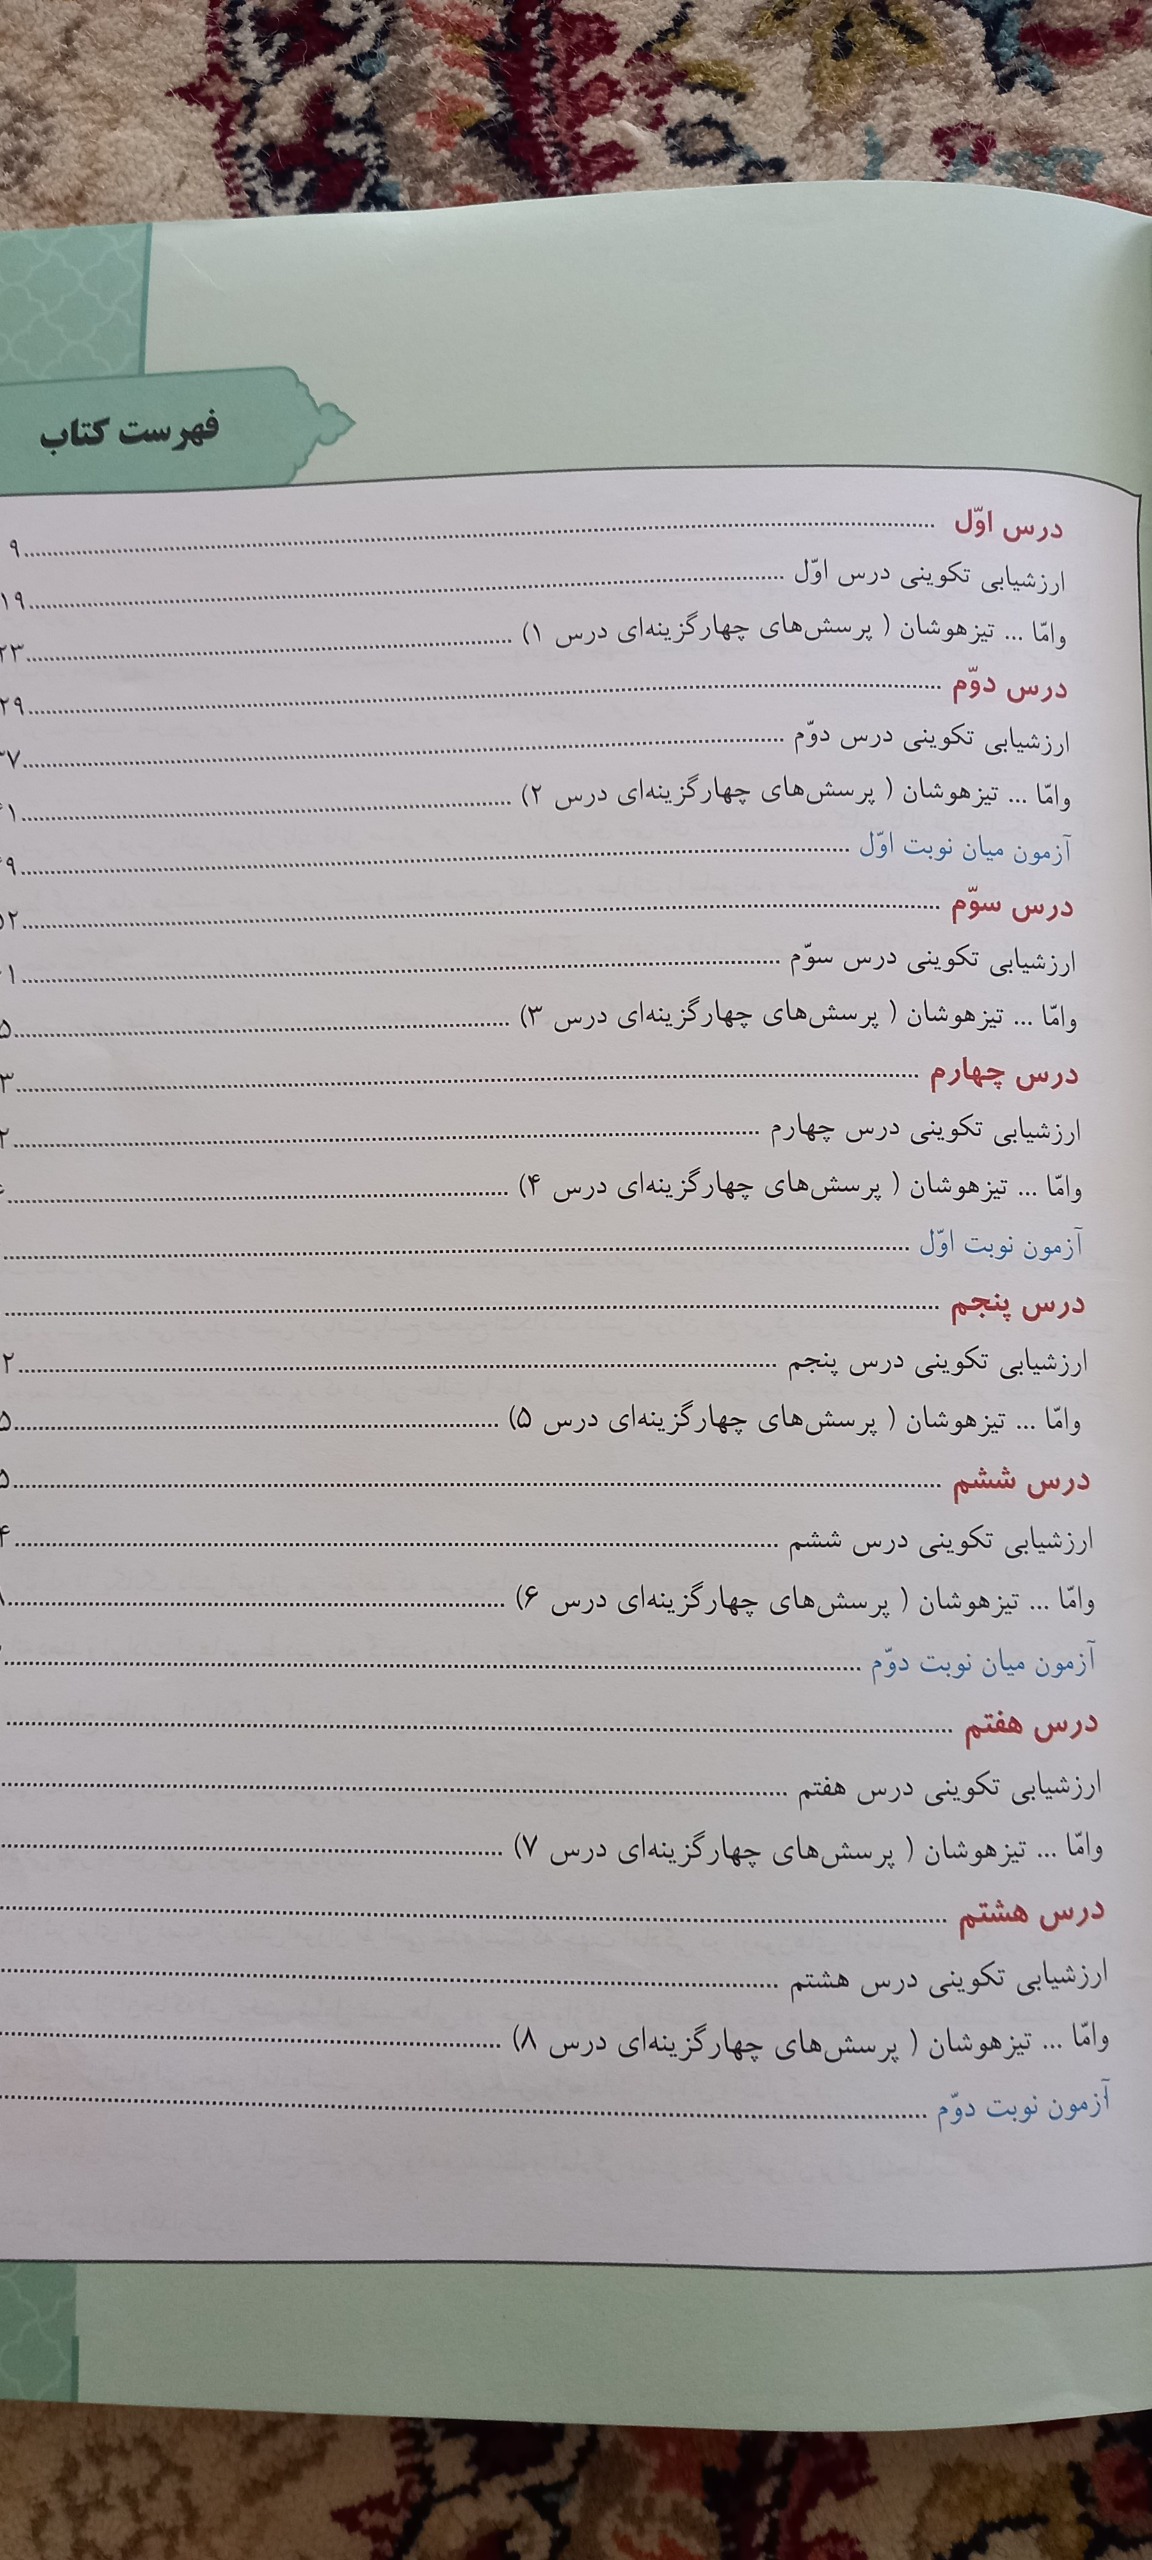 فهرست کتاب
درس اوّل ........ ۹
ارزشیابی تکوینی درس اوّل ........ ۱۹
وامّا ... تیزهوشان ( پرسش‌های چهارگزینه‌ای درس ۱) ........ ۲۳
درس دوّم ........ ۲۹
ارزشیابی تکوینی درس دوّم ........
وامّا ... تیزهوشان ( پرسش‌های چهارگزینه‌ای درس ۲) ........
آزمون میان نوبت اوّل ........
درس سوّم ........
ارزشیابی تکوینی درس سوّم ........
وامّا ... تیزهوشان ( پرسش‌های چهارگزینه‌ای درس ۳) ........
درس چهارم ........
ارزشیابی تکوینی درس چهارم ........
وامّا ... تیزهوشان ( پرسش‌های چهارگزینه‌ای درس ۴) ........
آزمون نوبت اوّل ........
درس پنجم ........
ارزشیابی تکوینی درس پنجم ........
وامّا ... تیزهوشان ( پرسش‌های چهارگزینه‌ای درس ۵) ........
درس ششم ........
ارزشیابی تکوینی درس ششم ........
وامّا ... تیزهوشان ( پرسش‌های چهارگزینه‌ای درس ۶) ........
آزمون میان نوبت دوّم ........
درس هفتم ........
ارزشیابی تکوینی درس هفتم ........
وامّا ... تیزهوشان ( پرسش‌های چهارگزینه‌ای درس ۷) ........
درس هشتم ........
ارزشیابی تکوینی درس هشتم ........
وامّا ... تیزهوشان ( پرسش‌های چهارگزینه‌ای درس ۸) ........
آزمون نوبت دوّم ........